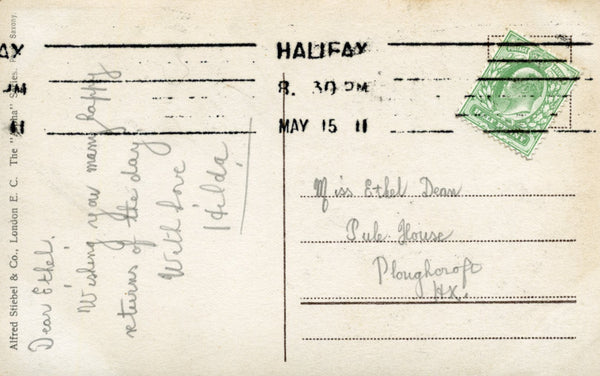 HALIFAX
8. 30 PM
MAY 15 11
AX
PM
11
Alfred Stiebel & Co., London E. C. The "Alpha" Series. Saxony.
Dear Ethel.
Wishing you many happy
returns of the day
With love
Hilda
Miss Ethel Dean
Pule House
Ploughcroft
HX.